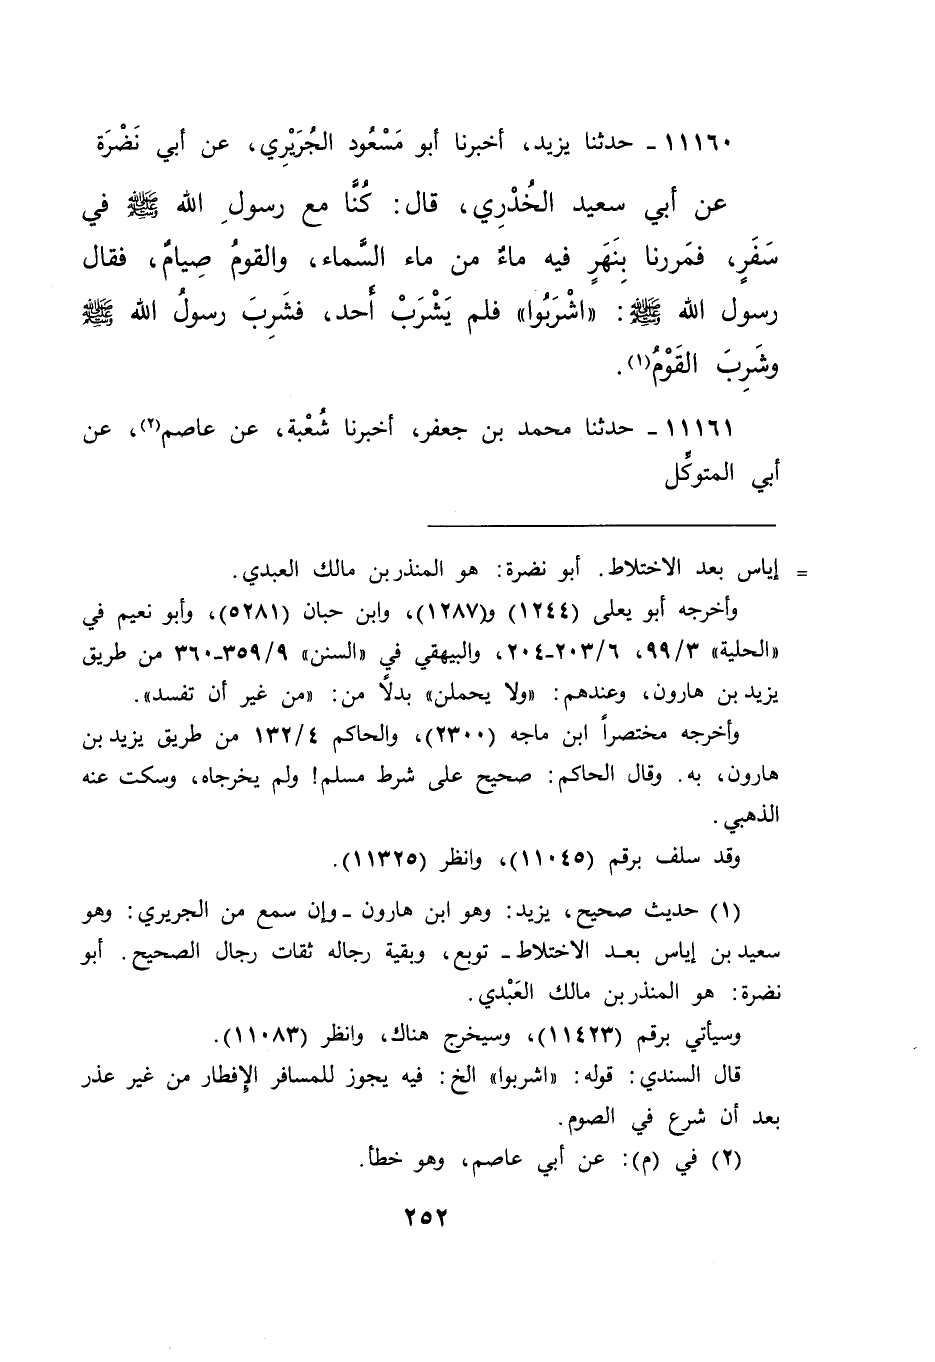 ١١١٦٠ ـ حدثنا يزيد، أخبرنا أبو مَسْعُود الجُرَيْرِي، عن أبي نَضْرَة
عن أبي سعيد الخُدْرِي، قال: كُنَّا مع رسولِ الله ﷺ في
سَفَرٍ، فمَررنا بِنَهَرٍ فيه ماءٌ من ماء السَّماء، والقومُ صِيامٌ، فقال
رسول الله ﷺ: «اشْرَبُوا» فلم يَشْرَبْ أَحد، فشَرِبَ رسولُ الله ﷺ
وشَرِبَ القَوْمُ(١).
١١١٦١ ـ حدثنا محمد بن جعفر، أخبرنا شُعْبة، عن عاصم(٢)، عن
أبي المتوكِّل
= إياس بعد الاختلاط. أبو نضرة: هو المنذر بن مالك العبدي.
وأخرجه أبو يعلى (١٢٤٤) و(١٢٨٧)، وابن حبان (٥٢٨١)، وأبو نعيم في
«الحلية» ٩٩/٣، ٢٠٣/٦ـ٢٠٤، والبيهقي في «السنن» ٣٥٩/٩ـ٣٦٠ من طريق
يزيد بن هارون، وعندهم: «ولا يحملن» بدلًا من: «من غير أن تفسد».
وأخرجه مختصراً ابن ماجه (٢٣٠٠)، والحاكم ١٣٢/٤ من طريق يزيد بن
هارون، به. وقال الحاكم: صحيح على شرط مسلم! ولم يخرجاه، وسكت عنه
الذهبي.
وقد سلف برقم (١١٠٤٥)، وانظر (١١٣٢٥).
(١) حديث صحيح، يزيد: وهو ابن هارون ـ وإن سمع من الجريري: وهو
سعيد بن إياس بعد الاختلاط ـ توبع، وبقية رجاله ثقات رجال الصحيح. أبو
نضرة: هو المنذر بن مالك العَبْدي.
وسيأتي برقم (١١٤٢٣)، وسيخرج هناك، وانظر (١١٠٨٣).
قال السندي: قوله: «اشربوا» الخ: فيه يجوز للمسافر الإفطار من غير عذر
بعد أن شرع في الصوم.
(٢) في (م): عن أبي عاصم، وهو خطأ.
٢٥٢